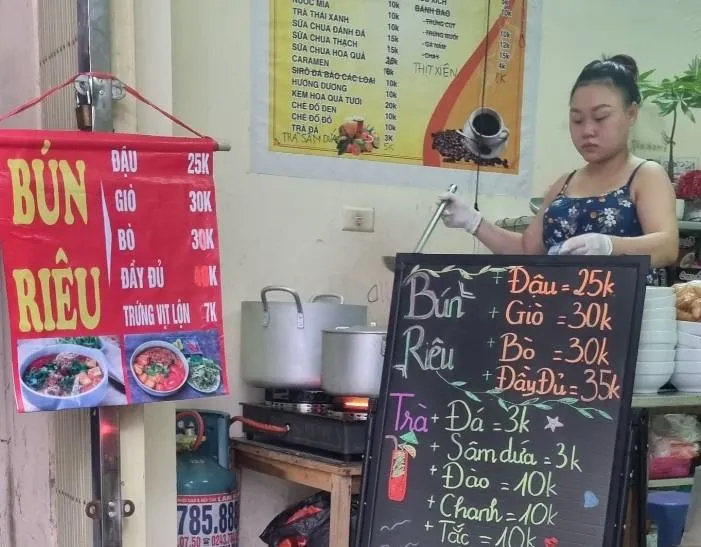 BÚN
RIÊU
ĐẬU 25K
GIÒ 30K
BÒ 30K
ĐẦY ĐỦ 40K
TRỨNG VỊT LỘN 7K
NƯỚC MÍA 10K
TRÀ THÁI XANH 10K
SỮA CHUA ĐÁNH ĐÁ 15K
SỮA CHUA THẠCH 15K
SỮA CHUA HOA QUẢ
CARAMEN
SIRÔ ĐÁ BÀO CÁC LOẠI
HƯỚNG DƯƠNG 10k
KEM HOA QUẢ TƯƠI 20k
CHÈ ĐỖ ĐEN 10k
CHÈ ĐỖ ĐỎ 10k
TRÀ ĐÁ 3K
TRÀ SÂM DỨA 5K
BÁNH BAO
- TRỨNG CÚT
THỊT XIÊN
Bún
Riêu
+ Đậu = 25k
+ Giò = 30k
+ Bò = 30k
+ Đầy Đủ = 35k
Trà + Đá = 3k
+ Sâm dứa = 3k
+ Đào = 10k
+ Chanh = 10k
+ Tắc = 10k
785.88
07.50